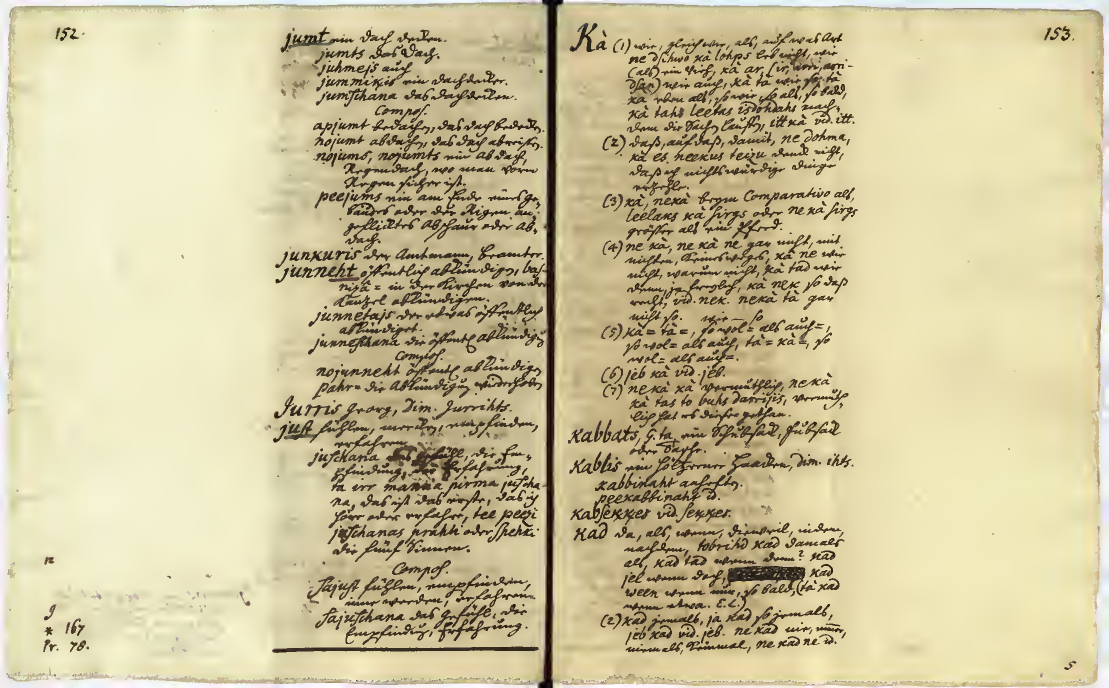 152.
jumt ein Dach decken.
jumts das Dach.
juhmejs auch
jummikis ein Dachdecker.
jumschana das Dachdecken.
Compos.
apjumt bedachen, das Dach bedecken.
nojumt abdachen, das Dach abreissen.
nojums, nojumts ein Abdach,
Regendach, wo man vorm
Regen sicher ist.
peejums ein am Ende eines Ge-
bäudes oder der Rigen an-
geflicktes Abschauer oder Ab-
dach.
junkuris der Amtmann, Beamter.
junneht öffentlich abkündigen, bas-
nizâ = in der Kirchen von der
Kantzel abkündigen.
junnetajs der etwas öffentlich
abkündiget.
junneschana die öffentl. abkündigung
Compos.
nojunneht öffentl. abkündigen
pahr= die Abkündigung wiederholen
Jurris Georg, Dim. Jurrihts.
just fühlen, merken, empfinden,
erfahren
juschana das Gefühl, die Em-
pfindung, die Erfahrung,
ta irr manna pirma juscha-
na, das ist das erste, das ich
höre oder erfahre, tee peezi
juschanas prahti oder spehki
die fünf Sinnen.
Compos.
sajust fühlen, empfinden,
inne werden, erfahren.
sajuschana das Gefühl, die
Empfindung, Erfahrung.
J
* 167
Pr. 78.
153.
Kà (1) wie, gleich wie, als, auf was Art
ne dsihwo kà lohps leb nicht, wie
(als) ein Vieh, kà ar,
wie auch, kà tà wie so, tà
kà eben als, so wie, so als, so bald,
kà tahs leetas isdohdahs nach-
dem die Sachen lauffen, itt kà vid. itt.
(2) daß, auf daß, damit, ne dohma,
kà es neekus teizu denk nicht,
daß ich nichtswürdige Dinge
erzehle.
(3) kà, nekà beym Comparativo als,
leelaks kà sirgs oder ne kà sirgs
grösser als ein Pferd.
(4) ne kà, ne kà ne gar nicht, mit
nichten, keinesweges, kà ne wie
nicht, warum nicht, kà tad wie
denn, ja freylich, kà nek so daß
recht, vid. nek. nekà tà gar
nicht so. wie — so
(5) kà = tà =, so wol = als auch =,
so wol = als auch, tà = kà =, so
wol = als auch =.
(6) jeb kà vid. jeb.
(7) ne kà kà vermuthlich, ne kà
kà tas to buhs darrijis, vermuth-
lich hat es dieser gethan.
Kabbats, G. ta, ein Schubsack, Fubsack
oder Tasche.
Kablis ein höltzerner Haacken, Dim. ihts.
kabbinaht anheften.
peekabbinaht id.
kabsekkes vid. sekkes.
Kad da, als, wenn, dieweil, indem,
nachdem, tobrihd kad damals
als, kad tad wenn denn? kad
jel wenn doch, kad
ween wenn nur, so bald, (tà kad
wenn etwa. E. E.)
(2) kad jemals, ja kad so jemals,
jeb kad vid. jeb. ne kad nie, nimer,
niemals, keinmal, ne kad ne id.
5